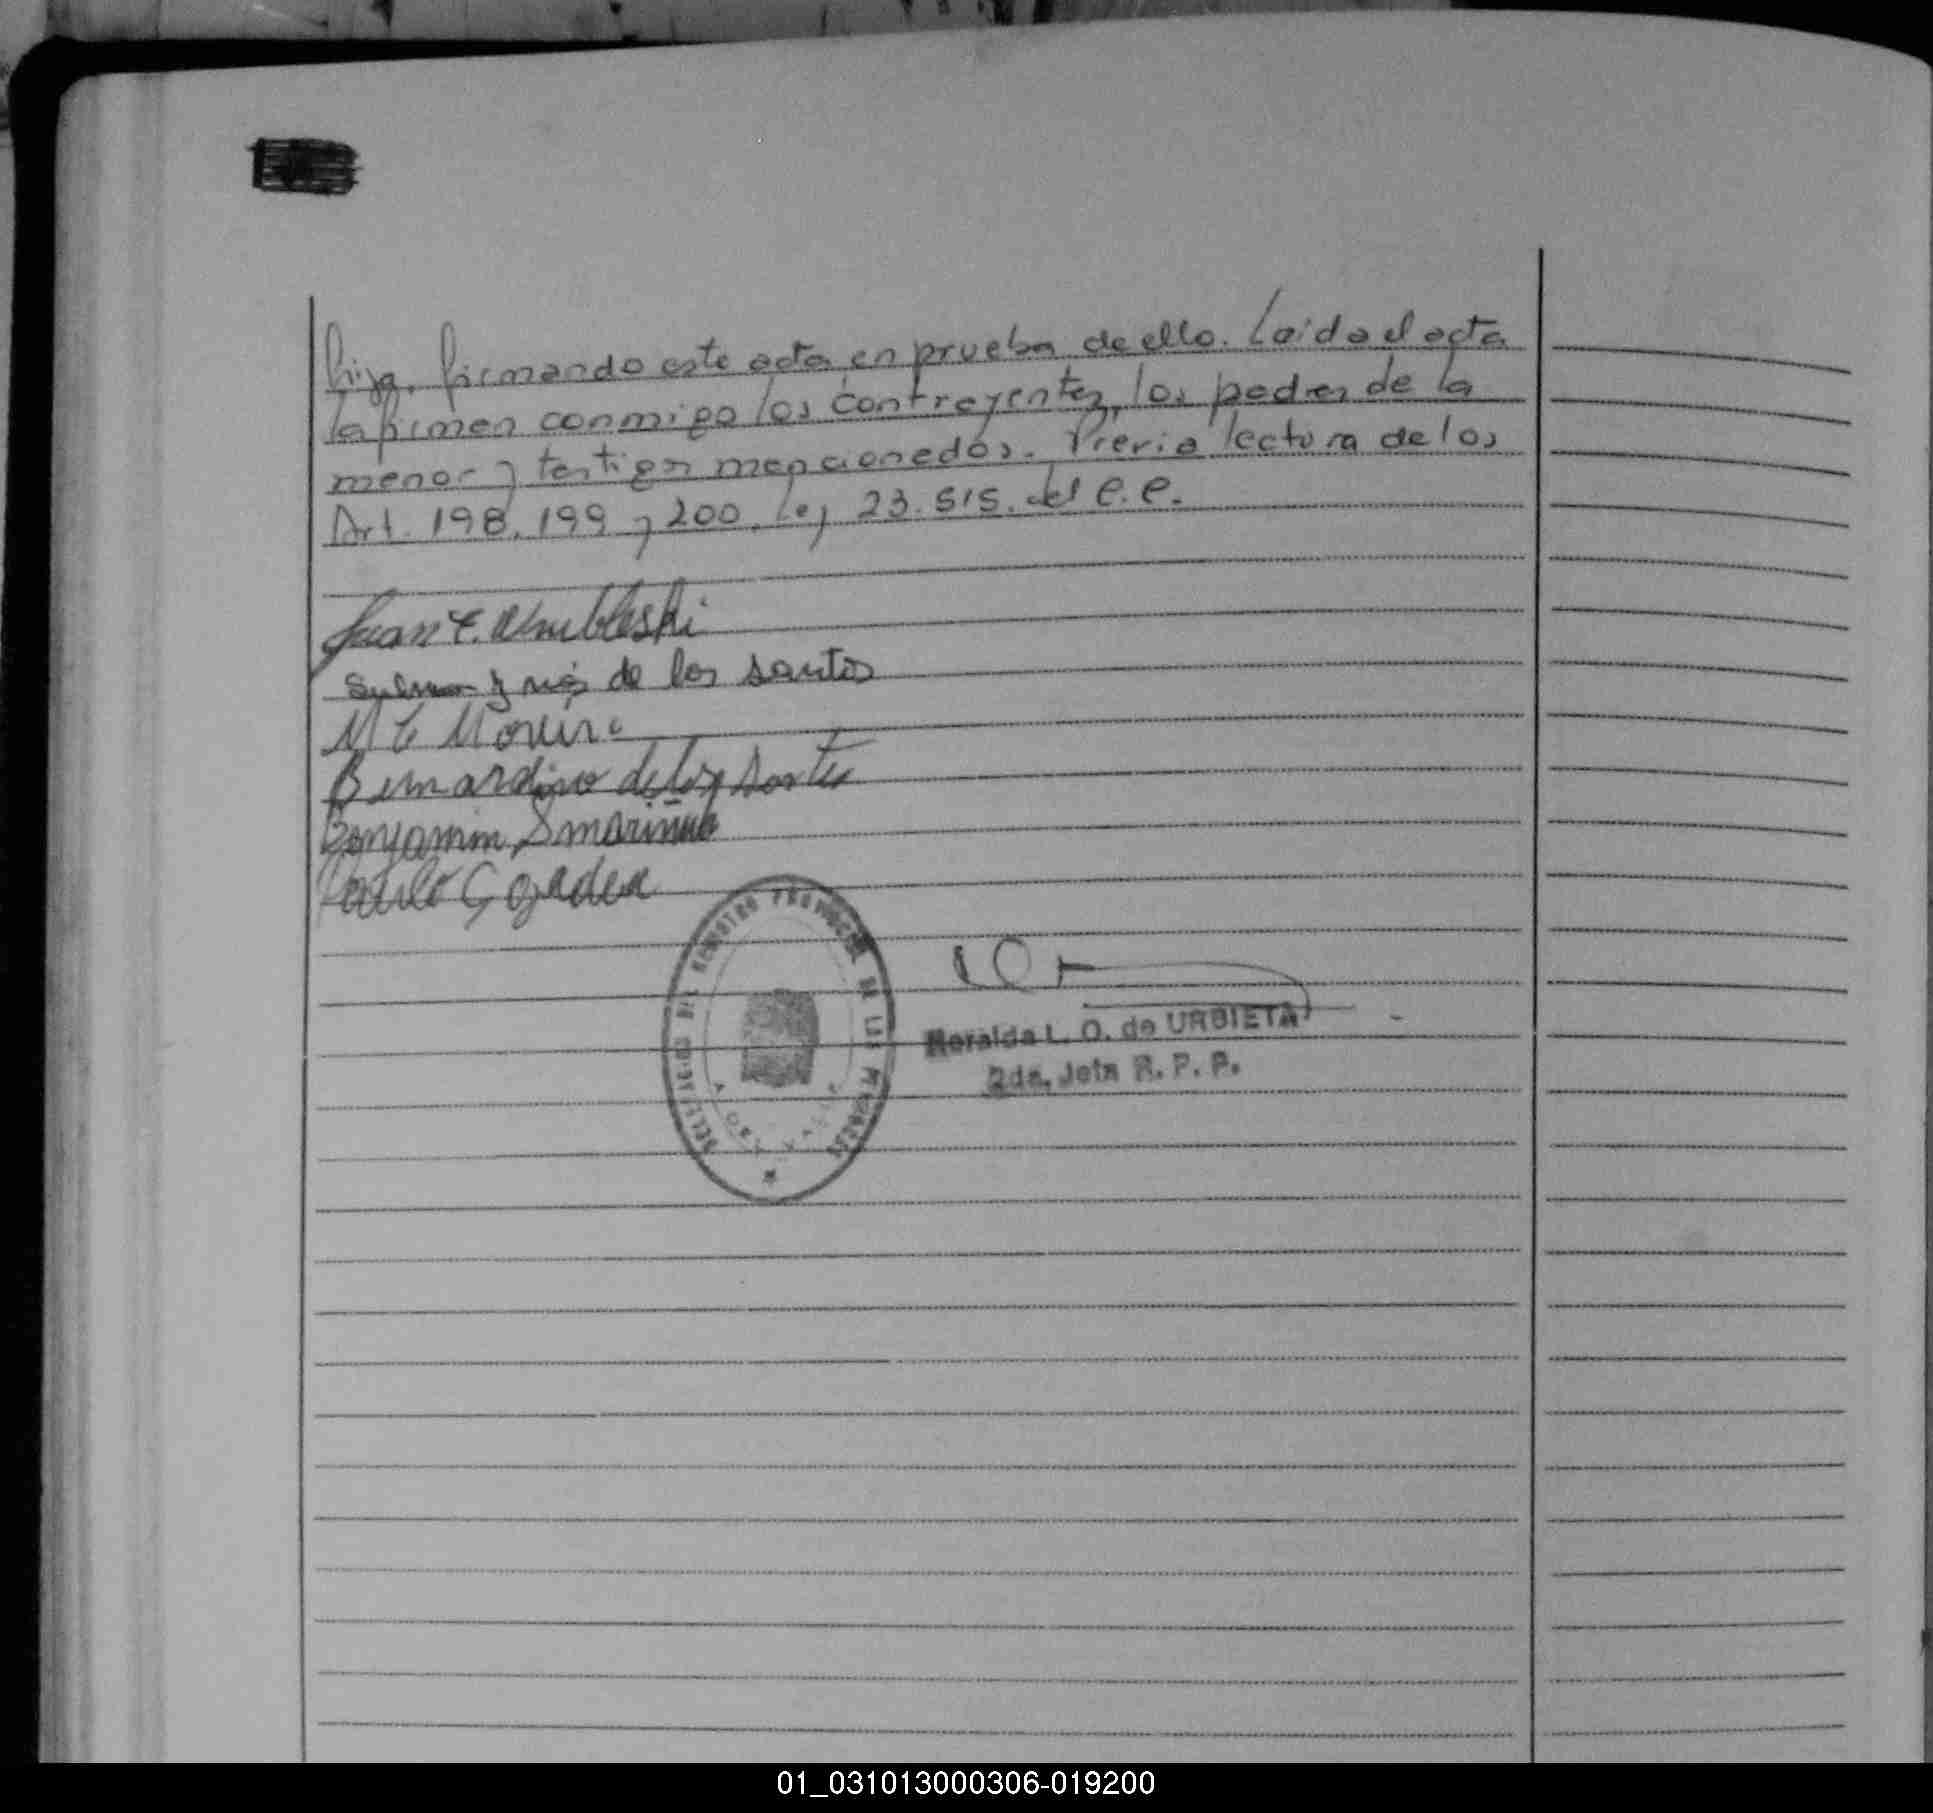 hija, firmando este acta en prueba de ello. Leida el acta
la firman conmigo los contrayentes, los padres de la
menor y testigos mencionados. Previa lectura de los
Art. 198, 199 y 200, Ley 23.515. del C.C.
Juan
de los santos
M Moreira
Bernardino de los Santos
Benjamin
DEL REGISTRO PROVINCIAL DE LAS PERSONAS
L. O. de URBIETA
2da. Jefa R. P. P.
01_031013000306-019200